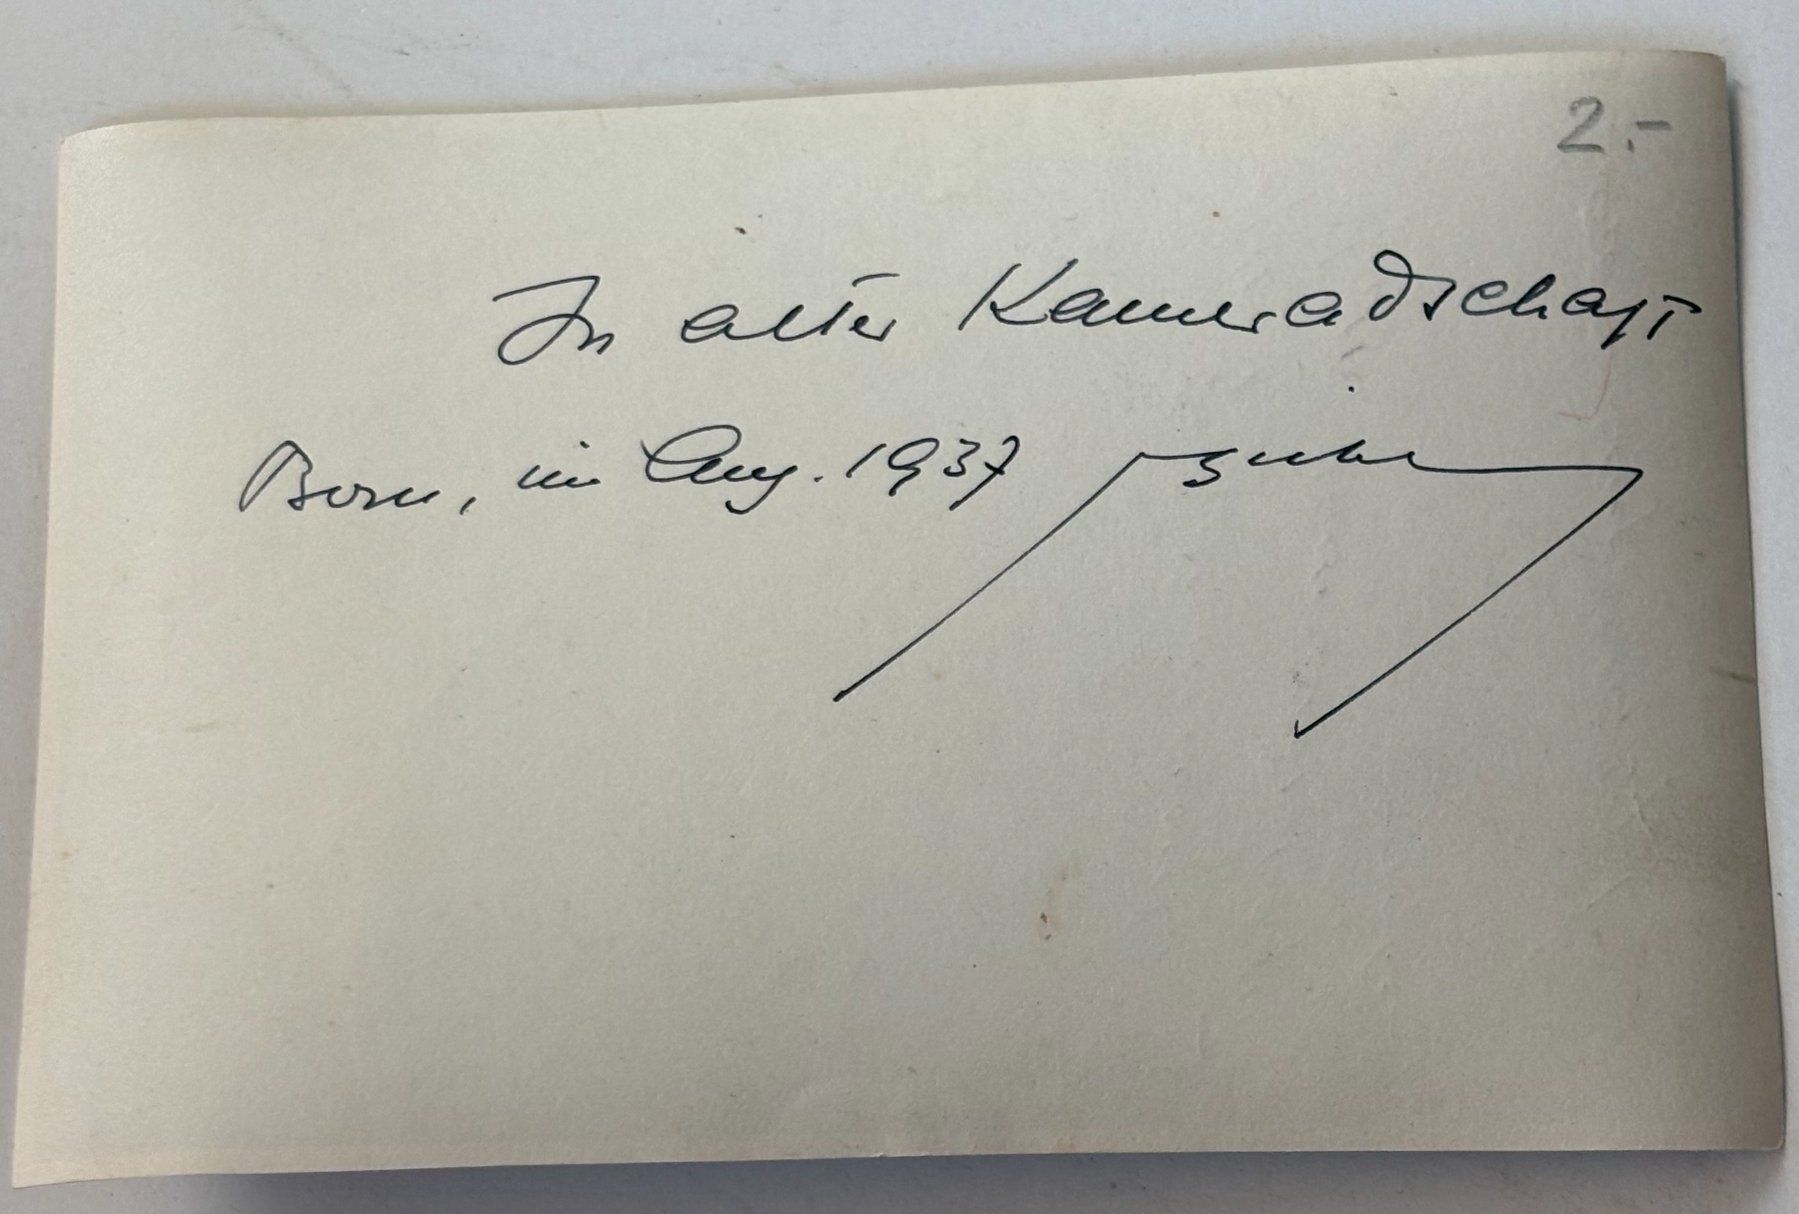 2.-
In alter Kameradschaft
Bern, im Aug. 1937